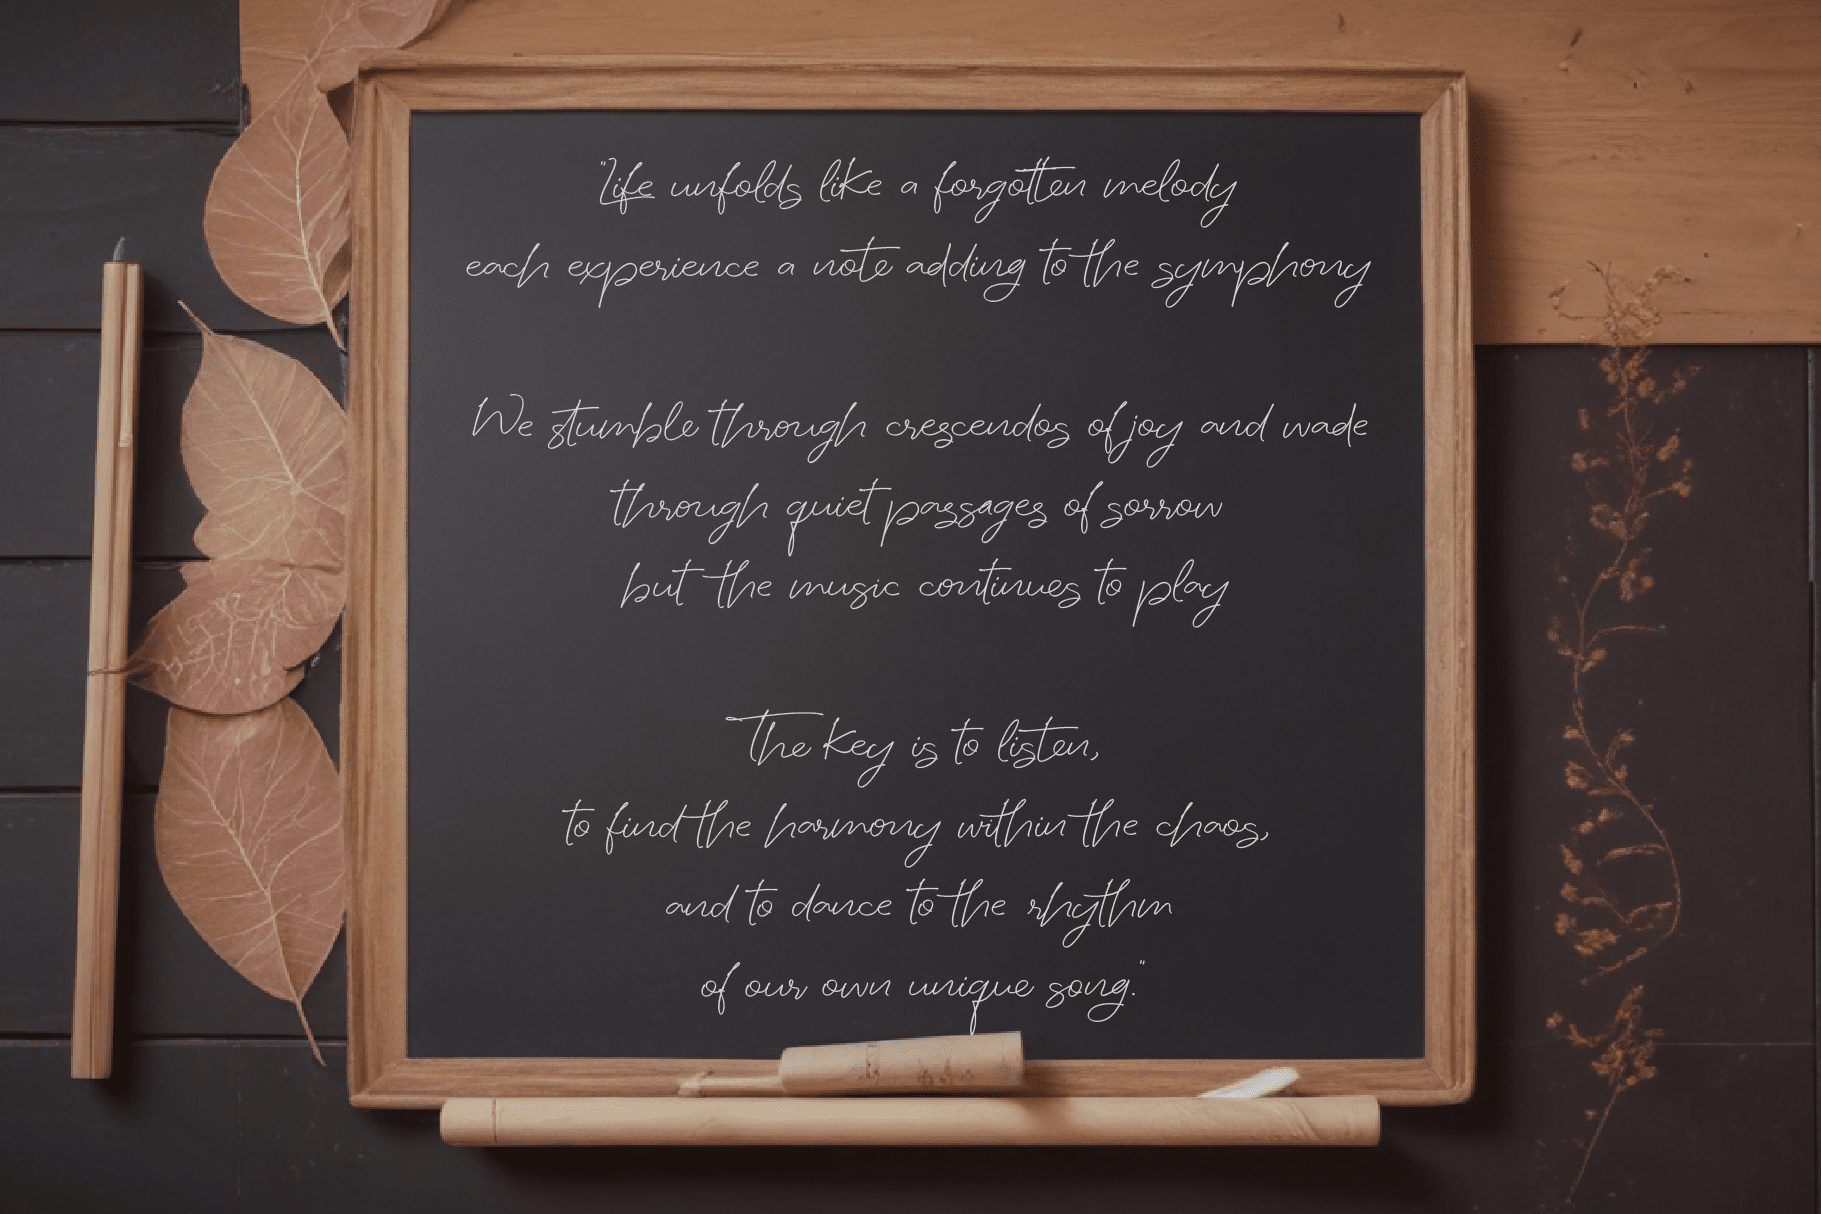 "Life unfolds like a forgotten melody
each experience a note adding to the symphony
We stumble through crescendos of joy and wade
through quiet passages of sorrow
but the music continues to play
The key is to listen,
to find the harmony within the chaos,
and to dance to the rhythm
of our own unique song."